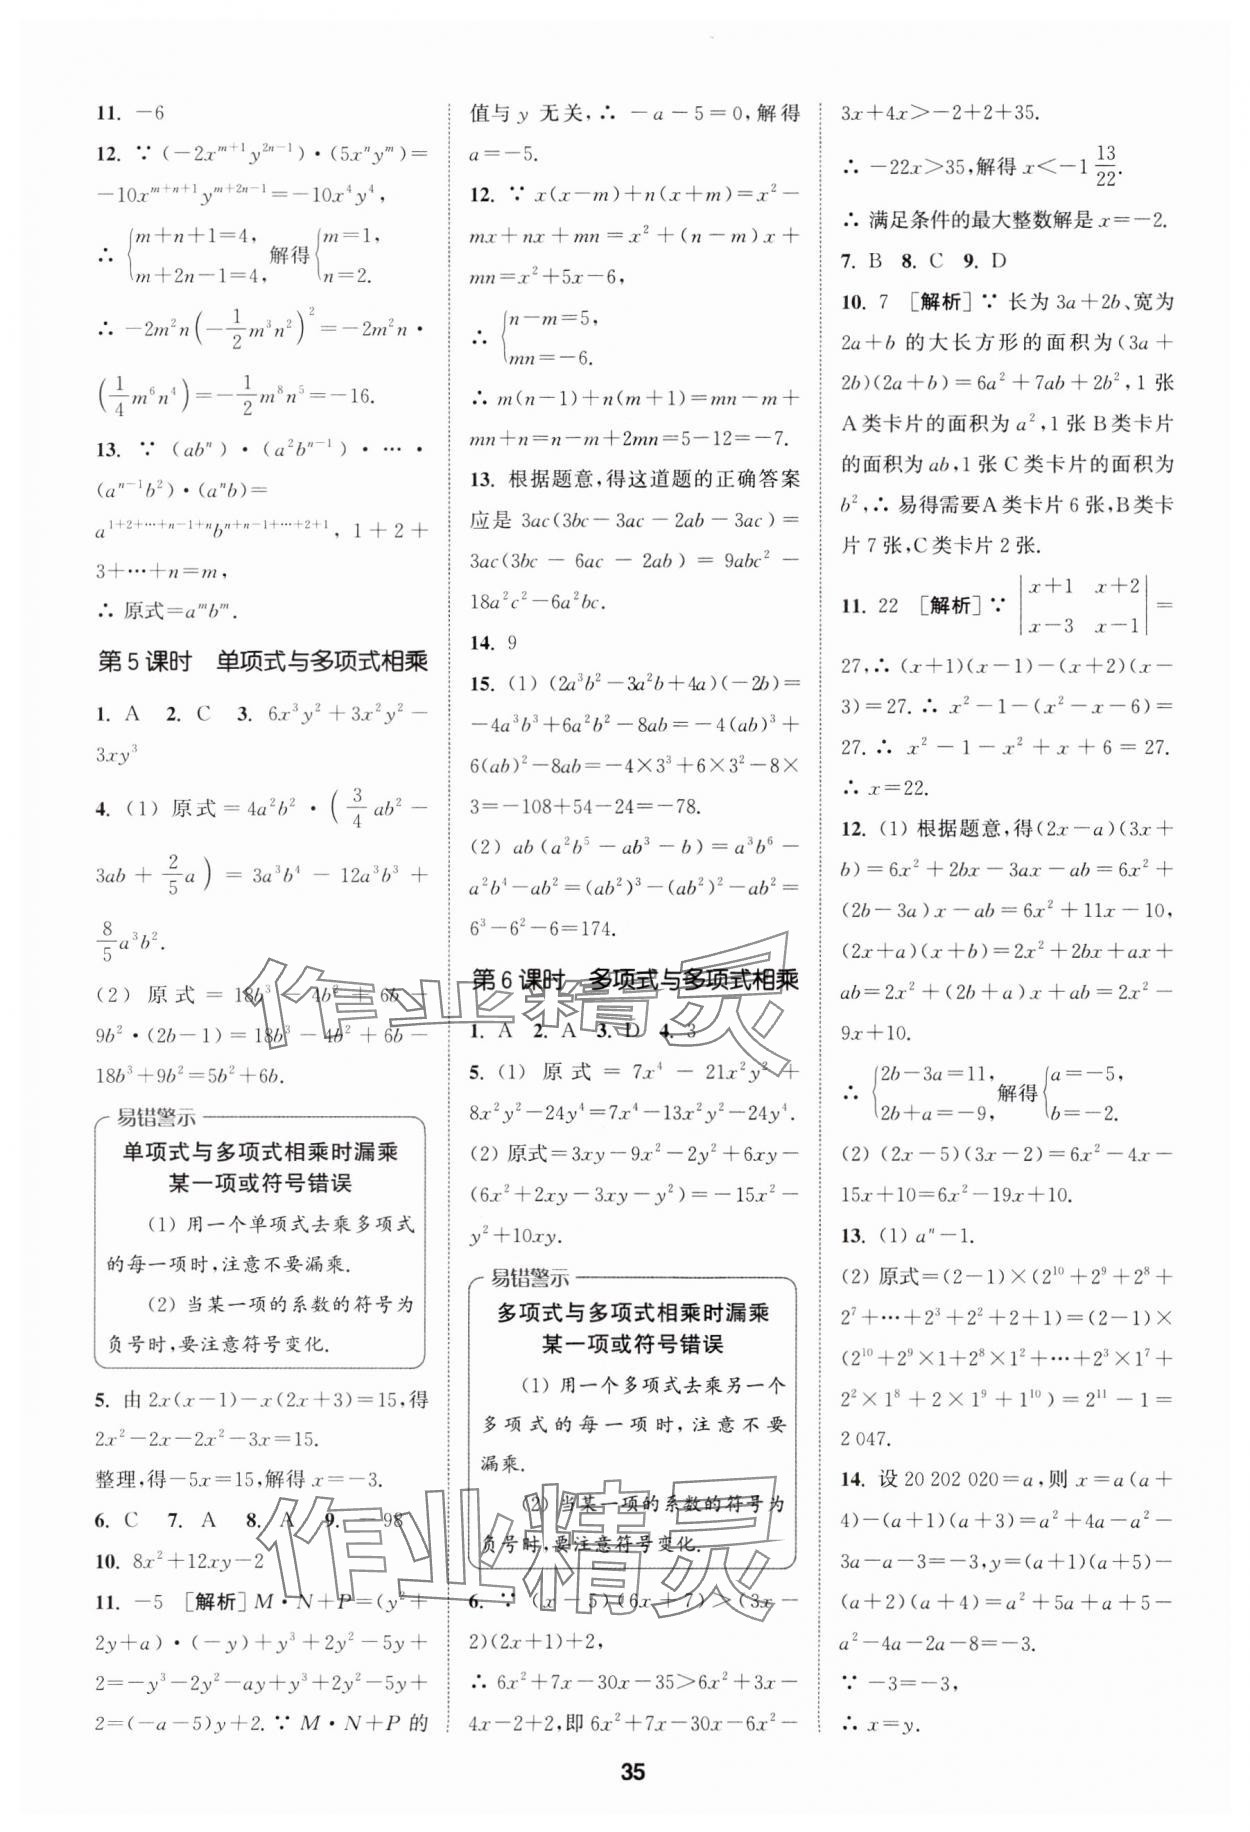 11. －6
12. ∵ (－2x^{m＋1}y^{2n－1})·(5x^{n}y^{m})＝
－10x^{m＋n＋1}y^{m＋2n－1}＝－10x^{4}y^{4},
∴ {m＋n＋1＝4, m＋2n－1＝4, 解得{m＝1, n＝2.
∴ －2m²n(－1/2 m³n²)²＝－2m²n·
(1/4 m⁶n⁴)＝－1/2 m⁸n⁵＝－16.
13. ∵ (ab^{n})·(a²b^{n－1})·…·
(a^{n－1}b²)·(a^{n}b)＝
a^{1＋2＋…＋n－1＋n}b^{n＋n－1＋…＋2＋1}, 1＋2＋
3＋…＋n＝m,
∴ 原式＝a^{m}b^{m}.
第5课时 单项式与多项式相乘
1. A 2. C 3. 6x³y²＋3x²y²－
3xy³
4. (1) 原式＝4a²b²·(3/4 ab²－
3ab＋2/5 a)＝3a³b⁴－12a³b³＋
8/5 a³b².
(2) 原式＝18b³－4b²＋6b－
9b²·(2b－1)＝18b³－4b²＋6b－
18b³＋9b²＝5b²＋6b.
易错警示
单项式与多项式相乘时漏乘
某一项或符号错误
(1) 用一个单项式去乘多项式
的每一项时,注意不要漏乘.
(2) 当某一项的系数的符号为
负号时,要注意符号变化.
5. 由2x(x－1)－x(2x＋3)＝15,得
2x²－2x－2x²－3x＝15.
整理,得－5x＝15,解得x＝－3.
6. C 7. A 8. A 9. －98
10. 8x²＋12xy－2
11. －5 [解析]M·N＋P＝(y²＋
2y＋a)·(－y)＋y³＋2y²－5y＋
2＝－y³－2y²－ay＋y³＋2y²－5y＋
2＝(－a－5)y＋2.∵ M·N＋P的
值与y无关,∴ －a－5＝0,解得
a＝－5.
12. ∵ x(x－m)＋n(x＋m)＝x²－
mx＋nx＋mn＝x²＋(n－m)x＋
mn＝x²＋5x－6,
∴ {n－m＝5, mn＝－6.
∴ m(n－1)＋n(m＋1)＝mn－m＋
mn＋n＝n－m＋2mn＝5－12＝－7.
13. 根据题意,得这道题的正确答案
应是3ac(3bc－3ac－2ab－3ac)＝
3ac(3bc－6ac－2ab)＝9abc²－
18a²c²－6a²bc.
14. 9
15. (1) (2a³b²－3a²b＋4a)(－2b)＝
－4a³b³＋6a²b²－8ab＝－4(ab)³＋
6(ab)²－8ab＝－4×3³＋6×3²－8×
3＝－108＋54－24＝－78.
(2) ab(a²b⁵－ab³－b)＝a³b⁶－
a²b⁴－ab²＝(ab²)³－(ab²)²－ab²＝
6³－6²－6＝174.
第6课时 多项式与多项式相乘
1. A 2. A 3. D 4. 3
5. (1) 原式＝7x⁴－21x²y²＋
8x²y²－24y⁴＝7x⁴－13x²y²－24y⁴.
(2) 原式＝3xy－9x²－2y²＋6xy－
(6x²＋2xy－3xy－y²)＝－15x²－
y²＋10xy.
易错警示
多项式与多项式相乘时漏乘
某一项或符号错误
(1) 用一个多项式去乘另一个
多项式的每一项时,注意不要
漏乘.
(2) 当某一项的系数的符号为
负号时,要注意符号变化.
6. ∵ (x－5)(6x＋7)＞(3x－
2)(2x＋1)＋2,
∴ 6x²＋7x－30x－35＞6x²＋3x－
4x－2＋2,即6x²＋7x－30x－6x²－
3x＋4x＞－2＋2＋35.
∴ －22x＞35,解得x＜－1 13/22.
∴ 满足条件的最大整数解是x＝－2.
7. B 8. C 9. D
10. 7 [解析]∵ 长为3a＋2b、宽为
2a＋b的大长方形的面积为(3a＋
2b)(2a＋b)＝6a²＋7ab＋2b²,1张
A类卡片的面积为a²,1张B类卡片
的面积为ab,1张C类卡片的面积为
b²,∴ 易得需要A类卡片6张,B类卡
片7张,C类卡片2张.
11. 22 [解析]∵ |x＋1 x＋2 x－3 x－1|＝
27,∴ (x＋1)(x－1)－(x＋2)(x－
3)＝27.∴ x²－1－(x²－x－6)＝
27.∴ x²－1－x²＋x＋6＝27.
∴ x＝22.
12. (1) 根据题意,得(2x－a)(3x＋
b)＝6x²＋2bx－3ax－ab＝6x²＋
(2b－3a)x－ab＝6x²＋11x－10,
(2x＋a)(x＋b)＝2x²＋2bx＋ax＋
ab＝2x²＋(2b＋a)x＋ab＝2x²－
9x＋10.
∴ {2b－3a＝11, 2b＋a＝－9, 解得{a＝－5, b＝－2.
(2) (2x－5)(3x－2)＝6x²－4x－
15x＋10＝6x²－19x＋10.
13. (1) a^{n}－1.
(2) 原式＝(2－1)×(2¹⁰＋2⁹＋2⁸＋
2⁷＋…＋2³＋2²＋2＋1)＝(2－1)×
(2¹⁰＋2⁹×1＋2⁸×1²＋…＋2³×1⁷＋
2²×1⁸＋2×1⁹＋1¹⁰)＝2¹¹－1＝
2 047.
14. 设20 202 020＝a,则x＝a(a＋
4)－(a＋1)(a＋3)＝a²＋4a－a²－
3a－a－3＝－3,y＝(a＋1)(a＋5)－
(a＋2)(a＋4)＝a²＋5a＋a＋5－
a²－4a－2a－8＝－3.
∵ －3＝－3,
∴ x＝y.
35
作业精灵
作业精灵